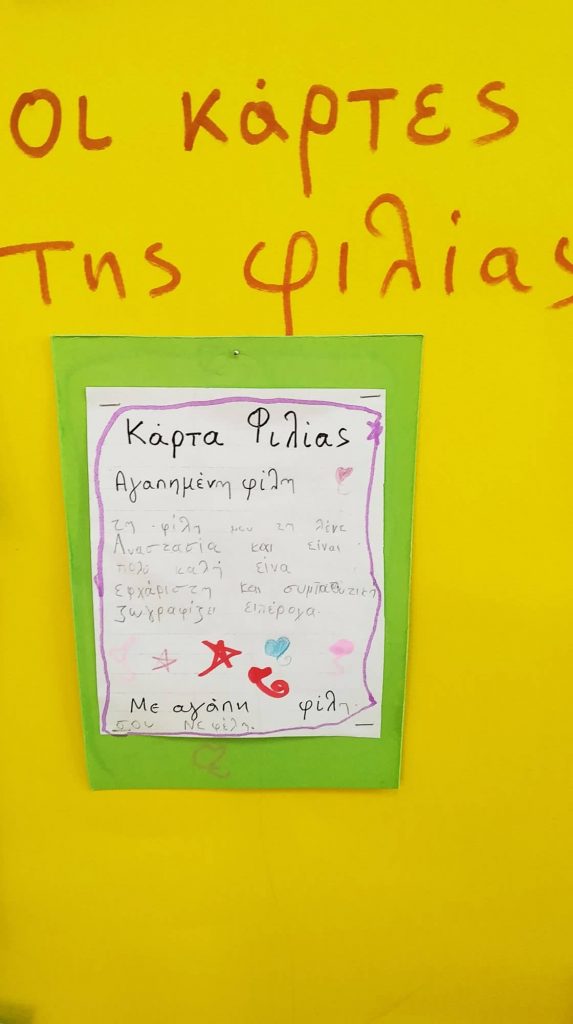 οι κάρτες
της φιλίας
Κάρτα Φιλίας
Αγαπημένη φίλη
τη φίλη μου τη λένε
Αναστασία και είναι
πολύ καλή είνα
εφχάριστη και συμπαθυτικη
ζωγραφίζει ειπέροχα.
Με αγάπη φίλη
σου Νεφέλη.